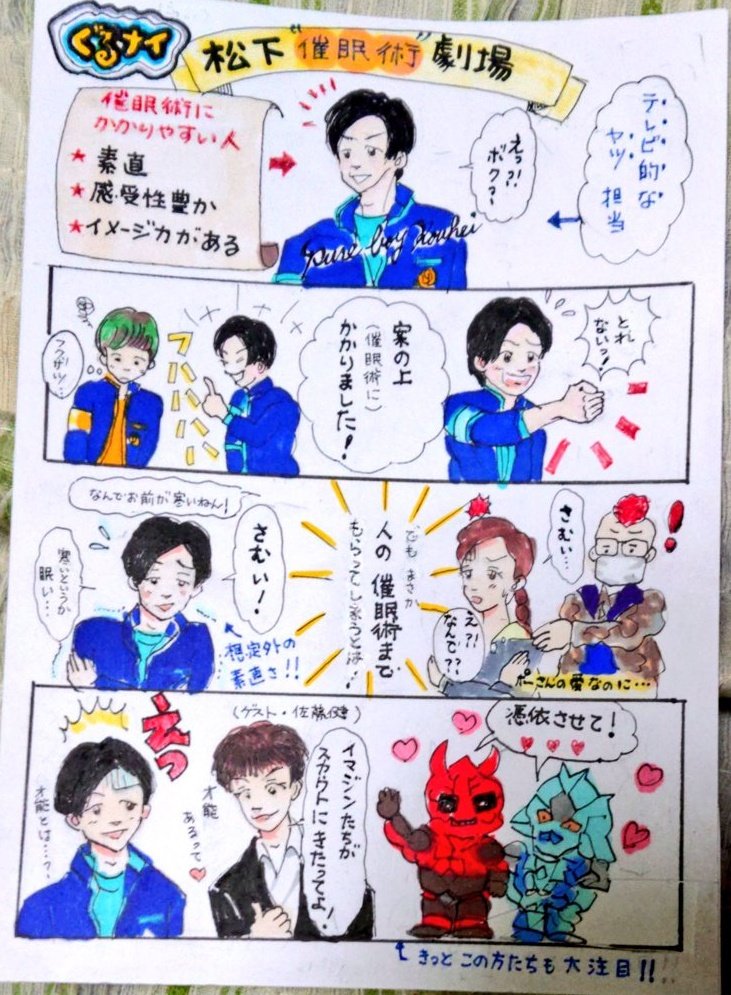 ぐるナイ
松下"催眠術"劇場
催眠術に
かかりやすい人
★素直
★感受性豊か
★イメージ力がある
えっ?!
ボク?
テレビ的な
ヤツ担当
Pure boy Kouhei
フクザツ…
フハハハハハ
家の上
(催眠術に)
かかりました!
とれ
ないっ!
なんでお前が寒いねん!
寒いというか
眠い…
さむい!
想定外の
素直さ!!
でも まさか
人の 催眠術まで
もらってしまうとは!
え?!
なんで??
さむい…
!
ポーさんの愛なのに…
えっ
才能とは…?
(ゲスト・佐藤健)
才能
あるって♥
イマジンたちが
スカウトに きたってよ!
憑依させて!
きっと この方たちも 大注目!!